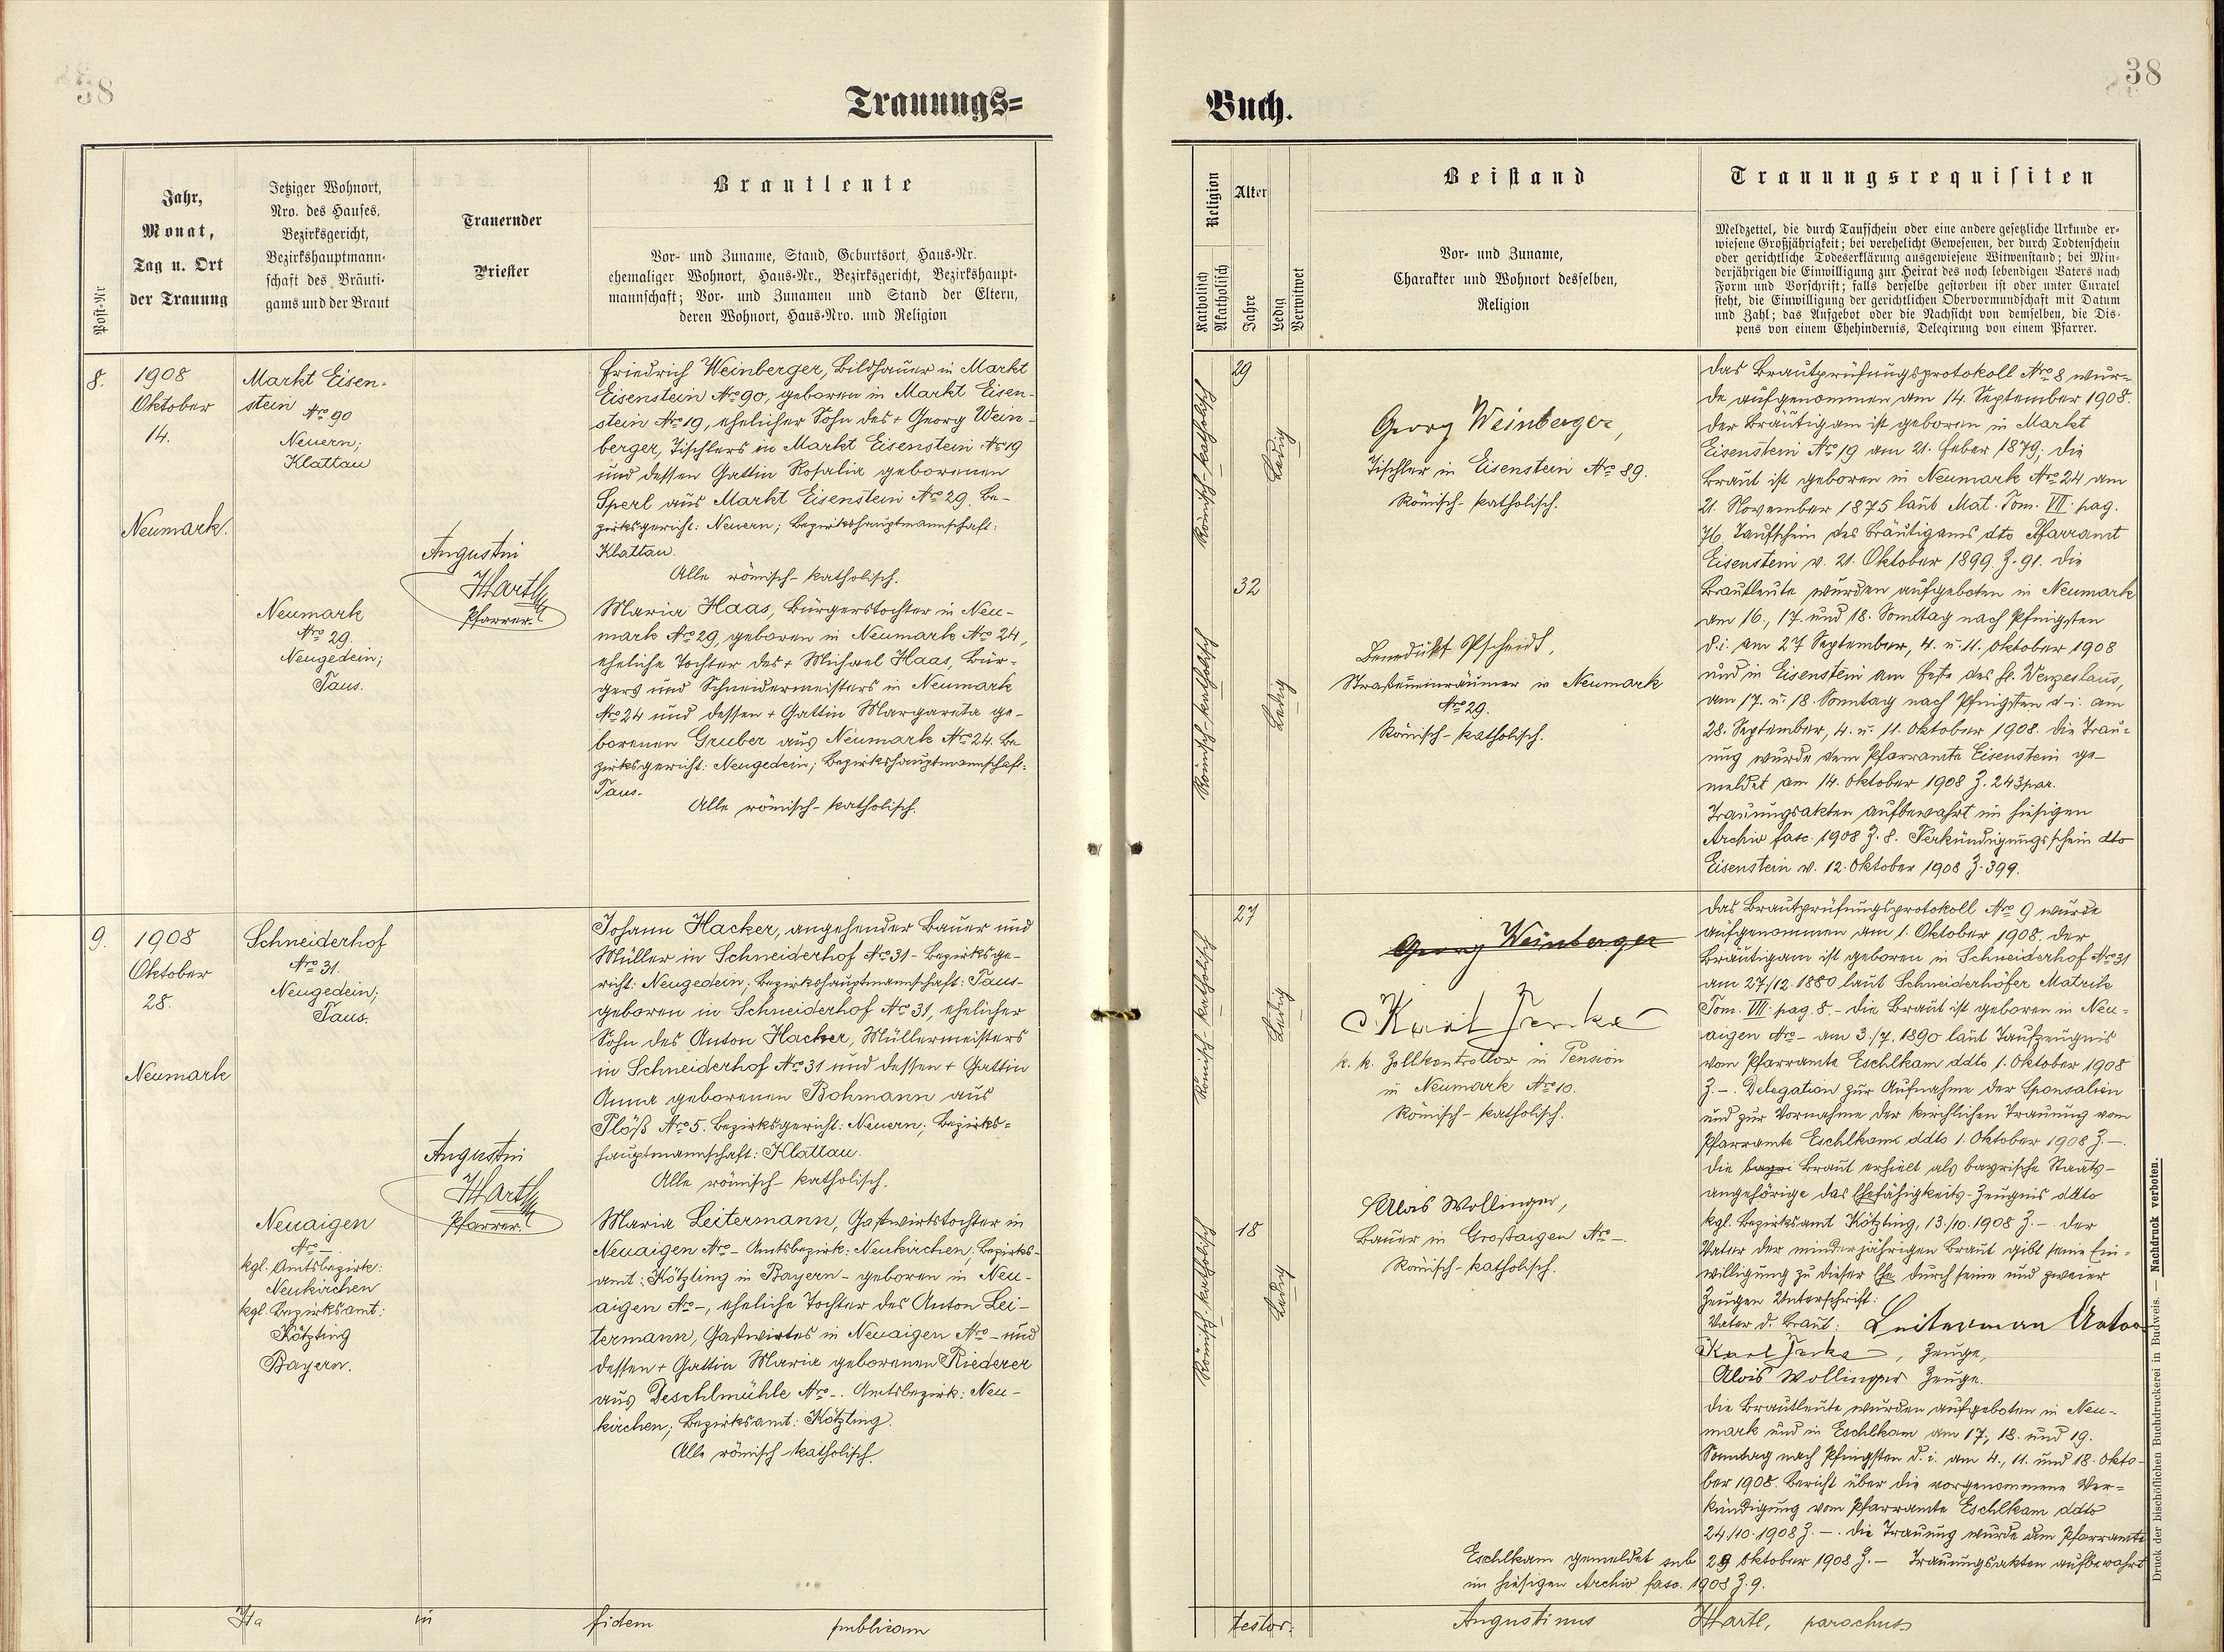 38
Trauungs=
Post-Nr
Jahr,
Monat,
Tag u. Ort
der Trauung
Jetziger Wohnort,
Nro. des Hauses,
Bezirksgericht,
Bezirkshauptmann-
schaft des Bräuti-
gams und der Braut
Trauernder
Priester
Brautleute
Vor- und Zuname, Stand, Geburtsort, Haus-Nr.
ehemaliger Wohnort, Haus-Nr., Bezirksgericht, Bezirkshaupt-
mannschaft; Vor- und Zunamen und Stand der Eltern,
deren Wohnort, Haus-Nro. und Religion
8.
1908
Oktober
14.
Neumark.
Markt Eisen-
stein Nro 90
Neuern;
Klattau
Neumark
Nro 29.
Neugedein;
Taus.
Augustin
Hartl
Pfarrer.
Friedrich Weinberger, Bildhauer in Markt
Eisenstein Nro 90, geboren in Markt Eisen-
stein Nro 19, ehelicher Sohn des + Georg Wein-
berger, Tischlers in Markt Eisenstein Nro 19
und dessen Gattin Rosalia geborenen
Sperl aus Markt Eisenstein Nro 29. Be-
zirksgericht: Neuern; Bezirkshauptmannschaft:
Klattau.
Alle römisch-katholisch.
Maria Haas, Bürgerstochter in Neu-
mark Nro 29, geboren in Neumark Nro 24,
eheliche Tochter des + Michael Haas, Bür-
gers und Schneidermeisters in Neumark
Nro 24 und dessen + Gattin Margareta ge-
borenen Gruber aus Neumark Nro 24. Be-
zirksgericht: Neugedein; Bezirkshauptmannschaft:
Taus.
Alle römisch-katholisch.
9.
1908
Oktober
28.
Neumark
Schneiderhof
Nro 31.
Neugedein;
Taus.
Neuaigen
Nro –.
kgl. Amtsbezirk:
Neukirchen
kgl. Bezirksamt:
Kötzting
Bayern.
Augustin
Hartl
Pfarrer.
Johann Hacker, angehender Bauer und
Müller in Schneiderhof Nro 31 - Bezirksge-
richt: Neugedein; Bezirkshauptmannschaft: Taus-
geboren in Schneiderhof Nro 31, ehelicher
Sohn des Anton Hacker, Müllermeisters
in Schneiderhof Nro 31 und dessen + Gattin
Anna geborenen Bohmann aus
Plöß Nro 5. Bezirksgericht: Neuern; Bezirks-
hauptmannschaft: Klattau.
Alle römisch-katholisch.
Maria Leitermann, Gastwirtstochter in
Neuaigen Nro – Amtsbezirk: Neukirchen; Bezirks-
amt: Kötzting in Bayern – geboren in Neu-
aigen Nro –, eheliche Tochter des Anton Lei-
termann, Gastwirtes in Neuaigen Nro – und
dessen + Gattin Maria geborenen Riederer
aus Deschlmühle Nro –. Amtsbezirk: Neu-
kirchen; Bezirksamt: Kötzting.
Alle römisch-katholisch.
Ita in fidem publicam
38
Buch.
Religion
Katholisch
Akatholisch
Alter
Jahre
Ledig
Verwitwet
Beistand
Vor- und Zuname,
Charakter und Wohnort desselben,
Religion
Trauungsrequisiten
Meldzettel, die durch Taufschein oder eine andere gesetzliche Urkunde er-
wiesene Großjährigkeit; bei verehelicht Gewesenen, der durch Todtenschein
oder gerichtliche Todeserklärung ausgewiesene Witwenstand; bei Min-
derjährigen die Einwilligung zur Heirat des noch lebendigen Vaters nach
Form und Vorschrift; falls derselbe gestorben ist oder unter Curatel
steht, die Einwilligung der gerichtlichen Obervormundschaft mit Datum
und Zahl; das Aufgebot oder die Nachsicht von demselben, die Dis-
pens von einem Ehehindernis, Delegirung von einem Pfarrer.
Römisch-katholisch
29
Ledig
Georg Weinberger,
Tischler in Eisenstein Nro 89.
Römisch-katholisch.
Römisch-katholisch
32
Ledig
Benedikt Pscheidt,
Straßeneinräumer in Neumark
Nro 29.
Römisch-katholisch.
Das Brautprüfungsprotokoll Nro 8 wur-
de aufgenommen am 14. September 1908.
Der Bräutigam ist geboren in Markt
Eisenstein Nro 19 am 21. Feber 1879; die
Braut ist geboren in Neumark Nro 24 am
21. November 1875 laut Mat. Tom. VII. pag.
76. Taufschein des Bräutigams dto Pfarramt
Eisenstein v. 21. Oktober 1899. Z. 91. Die
Brautleute wurden aufgeboten in Neumark
am 16., 17. und 18. Sonntag nach Pfingsten
d. i. am 27 September, 4. u. 11. Oktober 1908
und in Eisenstein am Feste des hl. Wenzeslaus,
am 17. u. 18. Sonntag nach Pfingsten d. i. am
28. September, 4. u. 11. Oktober 1908. Die Trau-
ung wurde dem Pfarramte Eisenstein ge-
meldet am 14. Oktober 1908 Z. 243 par.
Trauungsakten aufbewahrt im hiesigen
Archiv fasc. 1908 Z. 8. Verkündigungsschein dto
Eisenstein v. 12. Oktober 1908 Z. 399.
Römisch katholisch
27
Ledig
Georg Weinberger
Karl
k. k. Zollkontrollor in Pension
in Neumark Nro 10.
Römisch-katholisch.
Römisch-katholisch
18
Ledig
Alois Wollinger,
Bauer in Großaigen Nro –.
Römisch-katholisch.
Das Brautprüfungsprotokoll Nro 9 wurde
aufgenommen am 1. Oktober 1908. Der
Bräutigam ist geboren in Schneiderhof Nro 31
am 27/12. 1880 laut Schneiderhöfer Matrik
Tom. VII. pag. 8. – Die Braut ist geboren in Neu-
aigen Nro – am 3./7. 1890 laut Taufzeugnis
vom Pfarramte Eschlkam ddto 1. Oktober 1908
Z. –. Delegation zur Aufnahme der Sponsalien
und zur Vornahme der kirchlichen Trauung vom
Pfarramte Eschlkam ddto 1. Oktober 1908 Z. –.
Die bayri Braut erhielt als bayrische Staats-
angehörige das Ehefähigkeits-Zeugnis ddto
kgl. Bezirksamt Kötzting, 13./10. 1908 Z. –. Der
Vater der minderjährigen Braut gibt seine Ein-
willigung zu dieser Ehe durch seine und zweier
Zeugen Unterschrift:
Vater d. Braut: Leiterman Anton
Karl, Zeuge,
Alois Wollinger Zeuge.
Die Brautleute wurden aufgeboten in Neu-
mark und in Eschlkam am 17., 18. und 19.
Sonntag nach Pfingsten d. i. am 4., 11. und 18. Okto-
ber 1908. Bericht über die vorgenommene Ver-
kündigung vom Pfarramte Eschlkam ddto
24/10. 1908 Z. –. Die Trauung wurde dem Pfarramte
Eschlkam gemeldet sub 29 Oktober 1908 Z. – Trauungsakten aufbewahrt
im hiesigen Archiv fasc. 1908 Z. 9.
testor. Augustinus Hartl, parochus
Druck der bischöflichen Buchdruckerei in Budweis. — Nachdruck verboten.